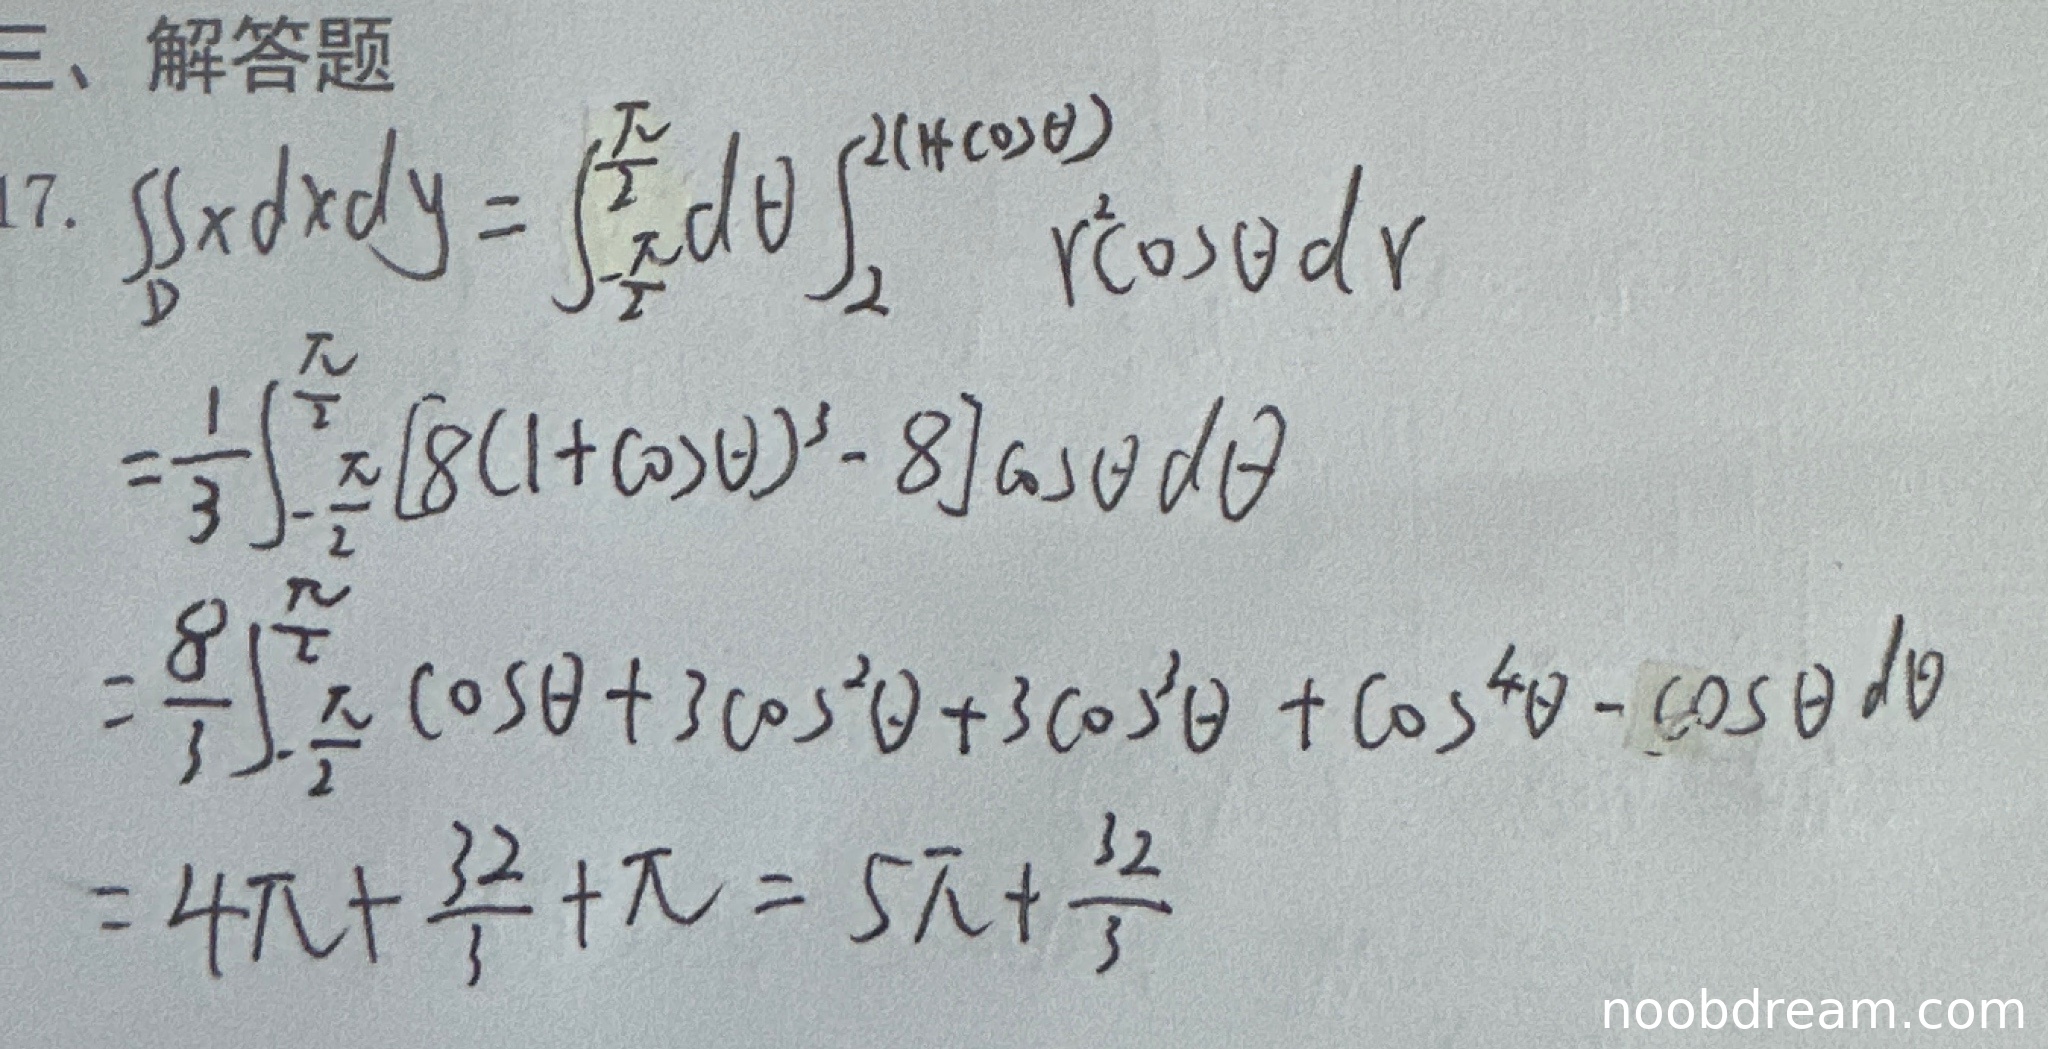 三、解答题
17. ∬_D x dx dy = ∫_{-π/2}^{π/2} dθ ∫_2^{2(1+cosθ)} r²cosθ dr
= 1/3 ∫_{-π/2}^{π/2} [8(1+cosθ)³ - 8] cosθ dθ
= 8/3 ∫_{-π/2}^{π/2} cosθ + 3cos²θ + 3cos³θ + cos⁴θ - cosθ dθ
= 4π + 32/3 + π = 5π + 32/3
noobdream.com